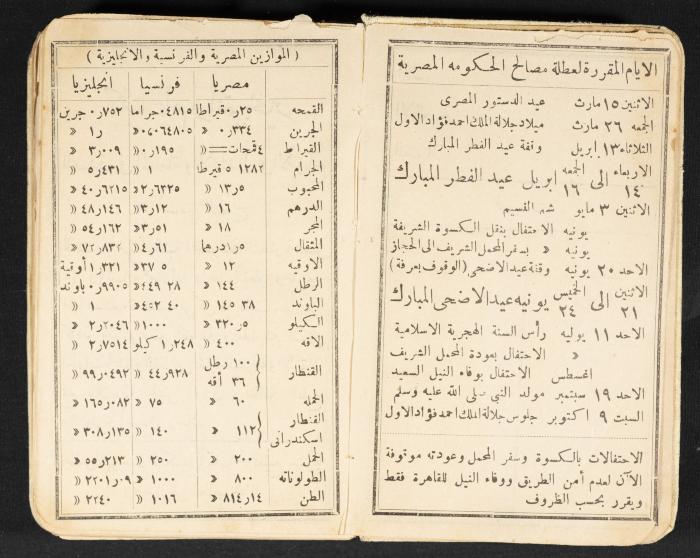 الايام المقررة لعطلة مصالح الحكومه المصرية
الاثنين ١٥ مارث عيد الدستور المصرى
الجمعه ٢٦ مارث ميلاد جلالة الملك احمد فؤاد الاول
الثلاثاء ١٣ ابريل وقفة عيد الفطر المبارك
الاربعاء ١٤ الى الجمعه ١٦ ابريل عيد الفطر المبارك
الاثنين ٣ مايو شم النسيم
يونيه الاحتفال بنقل الكسوة الشريفة
يونيه » بسفر المحمل الشريف الى الحجاز
الاحد ٢٠ يونيه وقفة عيد الاضحى (الوقوف بعرفة)
الاثنين ٢١ الى الخميس ٢٤ يونيه عيد الاضحى المبارك
الاحد ١١ يوليه رأس السنة الهجرية الاسلامية
» الاحتفال بعودة المحمل الشريف
اغسطس الاحتفال بوفاء النيل السعيد
الاحد ١٩ سبتمبر مولد النبي صلى الله عليه وسلم
السبت ٩ اكتوبر جلوس جلالة الملك احمد فؤاد الاول
الاحتفالات بالكسوة وسفر المحمل وعودته موقوفة
الآن لعدم أمن الطريق ووفاء النيل للقاهرة فقط
ويقرر بحسب الظروف
( الموازين المصرية والفرنسية والانجليزية )
مصريا فرنسيا انجليزيا
القمحه ٢٥ر٠ قيراطا ٠٤٨١٥ جراما ٧٥٢ر٠ جرين
الجرين ٣٣٤ر٠ » ٠٦٤٨٠٥ر٠ » ١ر »
القيراط ٤ قمحات = » ١٩٥ر٠ » ٠٠٩ر٣ »
الجرام ١٢٨٢ر٥ قيرط ١ » ٤٣١ر٥ »
المحبوب ١٣ر٥ » ٦٢٣٥ر٢ » ٦٢١٥ر٤٠ »
الدرهم ١٦ » ١٢ر٣ » ١٤٦ر٤٨ »
المجر ١٨ » ٥١ر٣ » ١٦٢ر٥٤ »
المثقال ٥ر١ درهما ٦١ر٤ » ٨٣٢ر٧٢ »
الاوقيه ١٢ » ٥ر٣٧ » ٣٢١ر١ أوقية
الرطل ١٤٤ » ٢٨ر٤٤٩ » ٩٩٠٥ر٠ باوند
الباوند ٣٨ر١٤٥ » ٤٠ر٤٥٢ » ١ »
الكيلو ٥ر٣٢٠ » ١٠٠٠ » ٢٠٤٦ر٢ »
الاقه ٤٠٠ » ٢٤٨ر١ كيلو ٧٥١٤ر٢ »
القنطار ١٠٠ رطل ٣٦ أقه ٩٢٨ر٤٤ » ٠٤٩٢ر٩٩ »
الحمله ٦٠ » ٧٥ » ٠٨٢ر١٦٥ »
القنطار اسكندرانى ١١٢ » ١٤٠ » ١٣٥ر٣٠٨ »
الحمل ٢٠٠ » ٢٥٠ » ٢١٣ر٥٥ »
الطولوناته ٨٠٠ » ١٠٠٠ » ٠٩ر٢٢٠١ »
الطن ١٤ر٨١٤ » ١٠١٦ » ٢٢٤٠ »